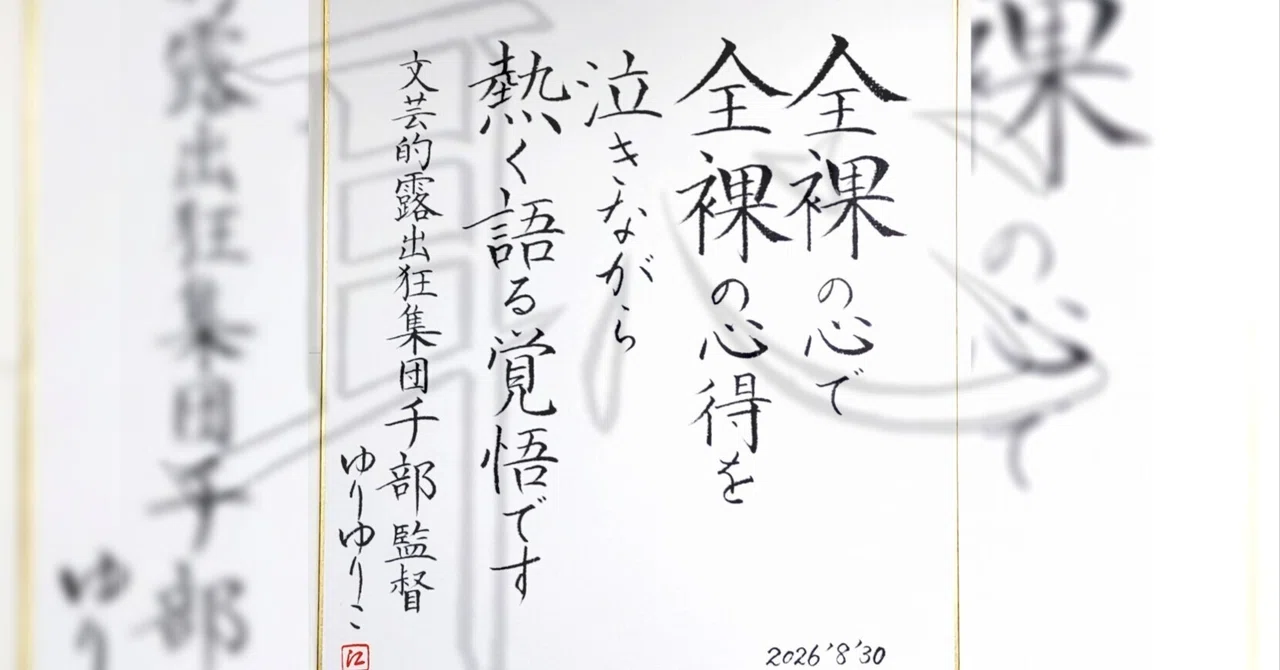 全裸の心で
全裸の心得を
泣きながら
熱く語る覚悟です
文芸的露出狂集団千部監督
ゆりゆりこ
江
2026'8'30